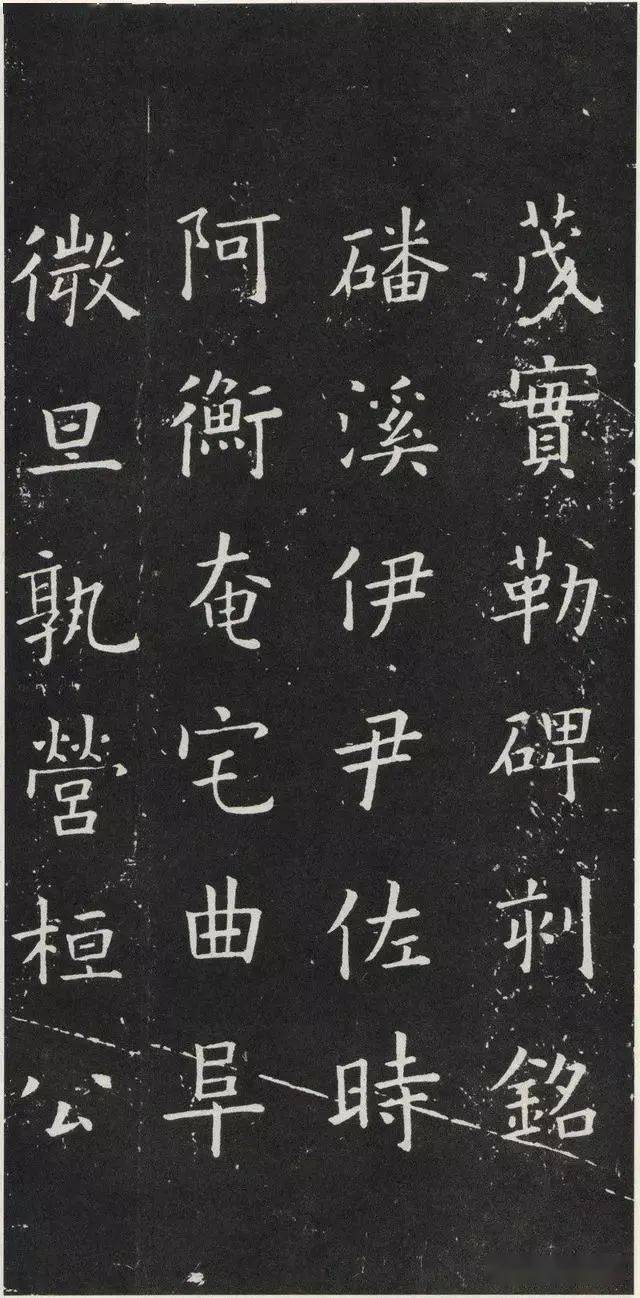 茂實勒碑刻銘
磻溪伊尹佐時
阿衡奄宅曲阜
微旦孰營桓公